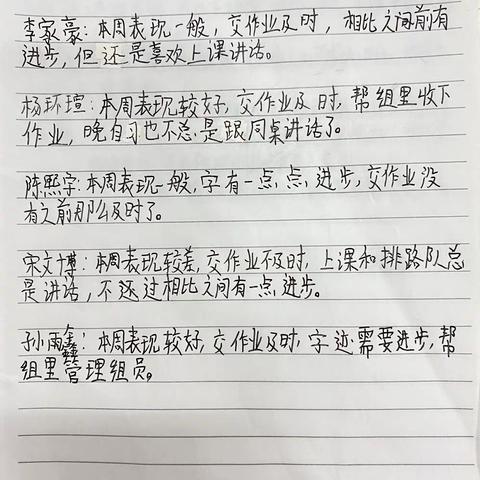 李家豪：本周表现一般，交作业及时，相比之间前有
进步，但还是喜欢上课讲话。
杨环瑄：本周表现较好，交作业及时，帮组里收下
作业，晚自习也不总是跟同桌讲话了。
陈熙宇：本周表现一般，字有一点点进步，交作业没
有之前那么及时了。
宋文博：本周表现较差，交作业不及时，上课和排路队总
是讲话，不还过相比之间有一点进步。
孙雨鑫：本周表现较好，交作业及时，字迹需要进步，帮
组里管理组员。